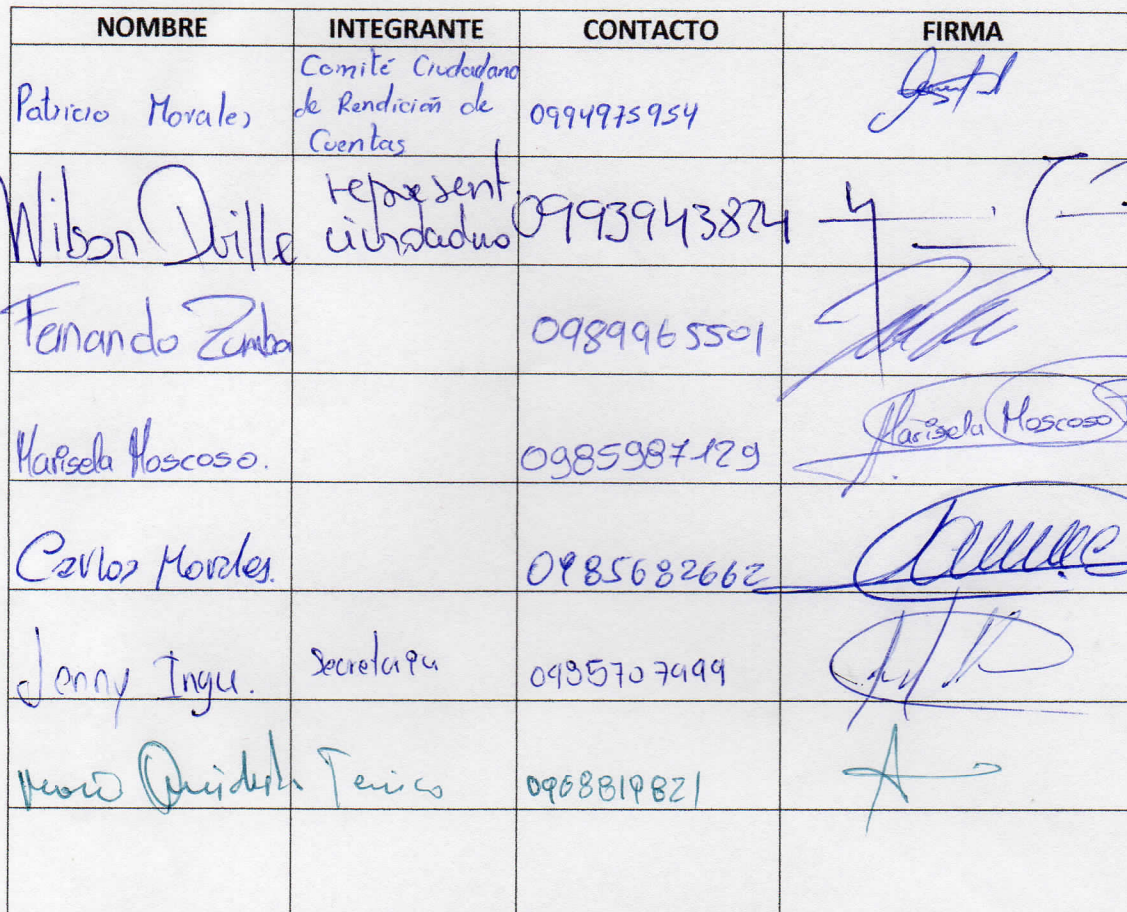 NOMBRE INTEGRANTE CONTACTO FIRMA
Patricio Morales Comité Ciudadano de Rendición de Cuentas 0994975954
Wilson represent. ciudadno 0993943824
Fernando Zumba 0989965501
Marisela Moscoso. 0985987129 Marisela Moscoso
Carlos Morales. 0985682662
Jenny Ingu. Secretaria